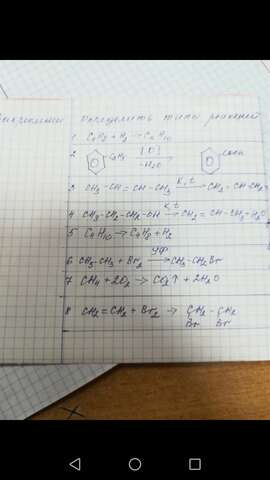 Определить типы реакций
1 C4H8 + H2 → C4H10
2 C2H5 [O] -H2O → COOH
3 CH3-CH=CH-CH3 K,t → CH3-CH-CH2
4 CH3-CH2-CH2-OH K,t → CH2=CH-CH3+H2O
5 C4H10 → C4H8 + H2
6 CH3-CH3 + Br2 УФ → CH3-CH2Br
7 CH4 + 2O2 → CO2↑ + 2H2O
8 CH2=CH2 + Br2 → CH2-CH2
Br Br